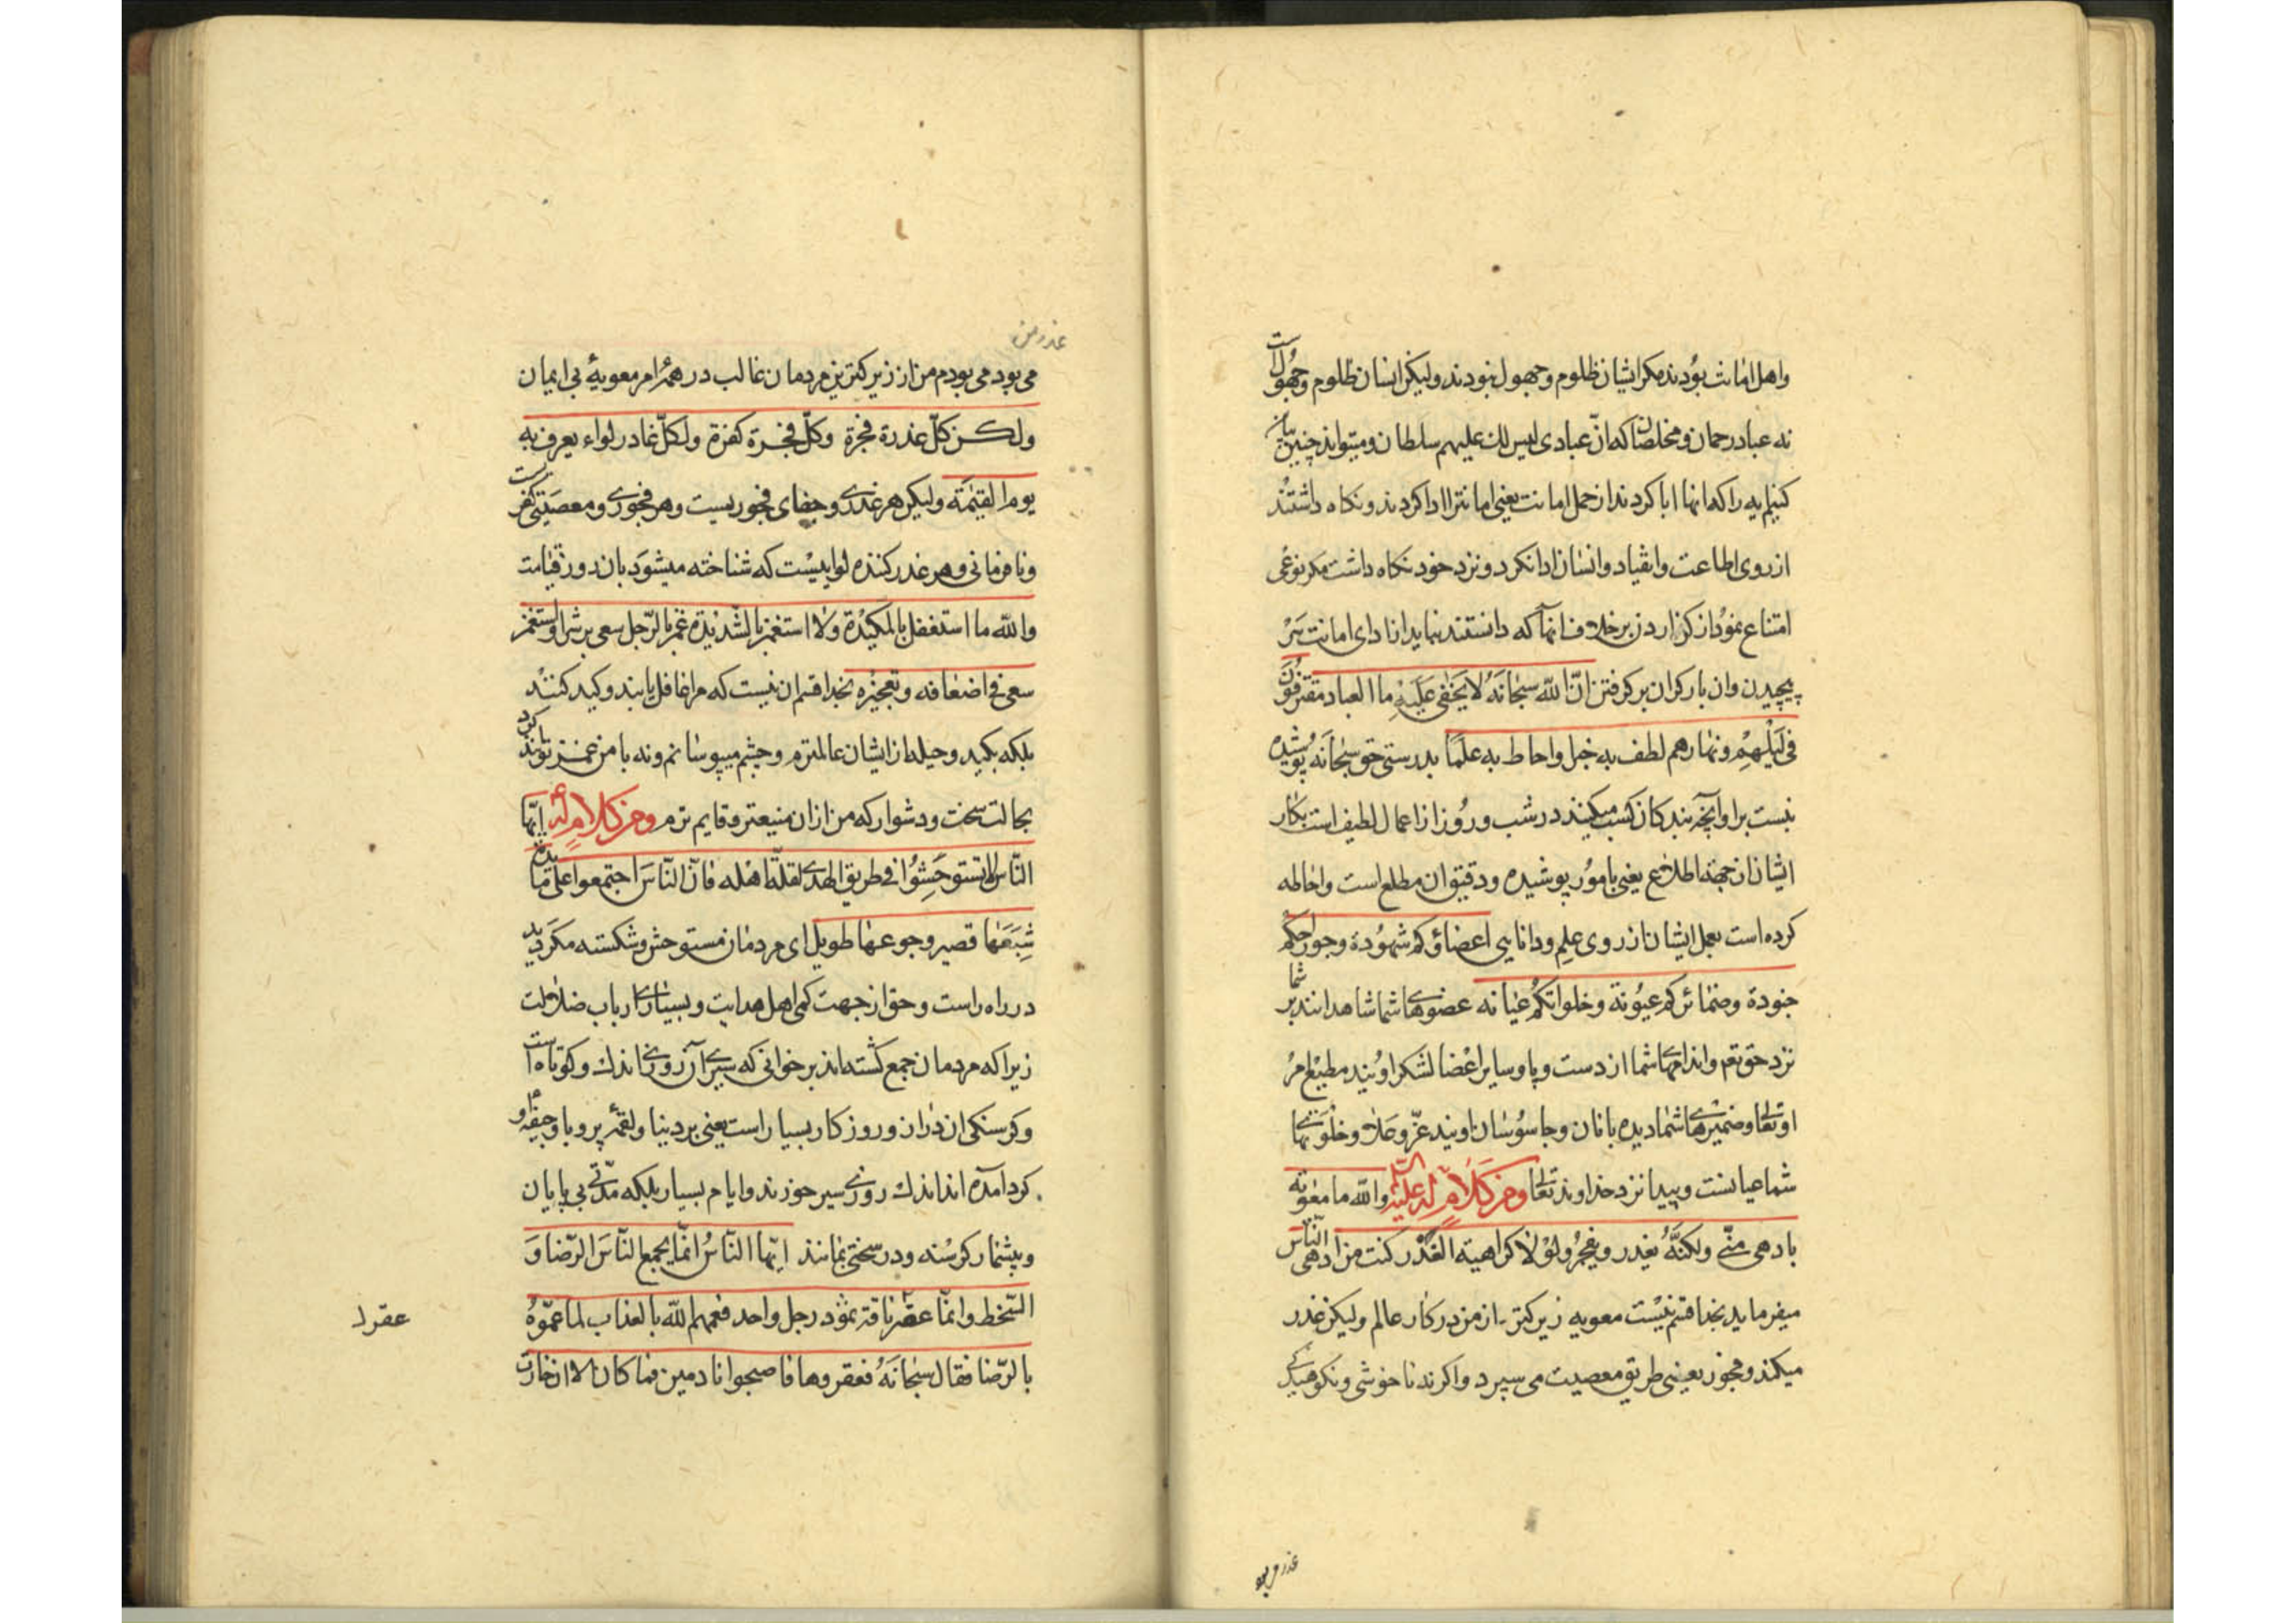 واهل امانت بودند مکر ایشان ظلوم وجهول نبودند ولیکن انسان ظلوم وجهول است
نه عباد رحمان ومخلصان که ان عبادی لیس لك علیهم سلطان ومیتواند چنین بیان
کنیم ایه را که انها ابا کردند از حمل امانت یعنی امانترا ادا کردند ونکاه داشتند
از روی اطاعت وانقیاد وانسان ادا نکرد ونزد خود نکاه داشت مکر نوعی
امتناع نمود از کزاردن بر خلاف انها که دانستند بنمایند از ادای امانت سر
پیچیدن وان بار کران بر کرفتن انّ اللّه سبحانَهُ لا یَخفی عَلَیْهِ ما العباد مقترفُونَ
فی لَیْلهِمْ ونهارهم لطف به خبرا واحاط به علمًا بدرستی حق سبحانَهُ پوشیده
نیست بر او آنچه بندکان کسب میکنند در شب وروز از اعمال لطیف است بکار
ایشان از جهة اطلاع یعنی بامور پوشیده ودقیق ان مطلع است واحاطه
کرده است بعمل ایشان از روی علم ودانایی اعضاؤکم شهودة وجوارحکم
جنودة وضمائرکم عیونه وخلواتکم عیانه عضوهای شما شاهدانند بر شما
نزد حق تعم واندامهای شما از دست وپا وسایر اعضا لشکر اویند مطیع امر
او تعالی وضمیرهای شما دیده بانان وجاسوسان اویند عزّ وعلا وخلوتهای
شما عیانست وپیدا نزد خداوند تعالی ومن کلامٍ له علیه السلم واللّه ما معویه
بادهی منّی ولکنَّهُ یغدر ویفجُرُ ولوْلا کراهیة الغَدْر کنت من ادهی النّاس
میفرماید بخدا قسم نیست معویه زیرکتر از من در کار عالم ولیکن غدر
میکند وفجور یعنی طریق معصیت می سپرد واکر نه ناخوشی ونکوهیدکی
غدر می بود
غدر من
می بود می بودم من از زیرکترین مردمان غالب در همهٔ امر معویهٔ بی ایمان
ولکن کلّ غدرة فجرة وکلّ فجرة کفرة ولکلّ غادر لواء یعرف به
یوم القیمَة ولیکن هر غدری وجفای فجوریست وهر فجوری ومعصیتی کفریست
ونافرمانی وهر غدر کننده لواییست که شناخته میشود بان در روز قیامت
واللّه ما استغفل بالمکیْدة ولا استغمز بالشّدیدة غمز بالرّجل سعی بر شرا واستغمز
سعی فی اضعافه وتعجیزه بخدا قسم ان نیست که مرا غافل یابند وکید کنند
بلکه بکید وحیله از ایشان عالمترم وچشم میپوشانم ونه با من غمز توانند کرد
بحالت سخت ودشوار که من از ان منیعتر وقایم ترم ومن کلامٍ له ایّها
النّاس لا تستوحَشُوا فی طریق الهدی لقلّة اهله فانّ النّاسَ اجتمعوا علی مائدة
شِبَعَها قصیر وجوعها طویل ای مردمان مستوحش وشکسته مکردید
در راه راست وحق از جهت کمی اهل هدایت وبسیاری ارباب ضلالت
زیرا که مردمان جمع کشته اند بر خوانی که سیری آن روزی اندك وکوتاه است
وکرسنکی ان دراز وروزکار بسیار است یعنی بر دنیا ولقمهٔ پر وبا وجیفهٔ او
کرد آمده اند اندك روزی سیر خورند وایام بسیار بلکه مدّتی بی پایان
وبیشمار کرسنه ودر سختی بمانند ایّها النّاسُ انّما یجمع النّاسَ الرّضا وَ
السّخط وانّما عقر ناقة ثمود رجل واحد فعمهم اللّه بالعذاب لما عمّوهُ
عقر لـ
بالرّضا فقال سبحانَهُ فعقروها فاصبحوا نادمین فما کان الا ان خارت